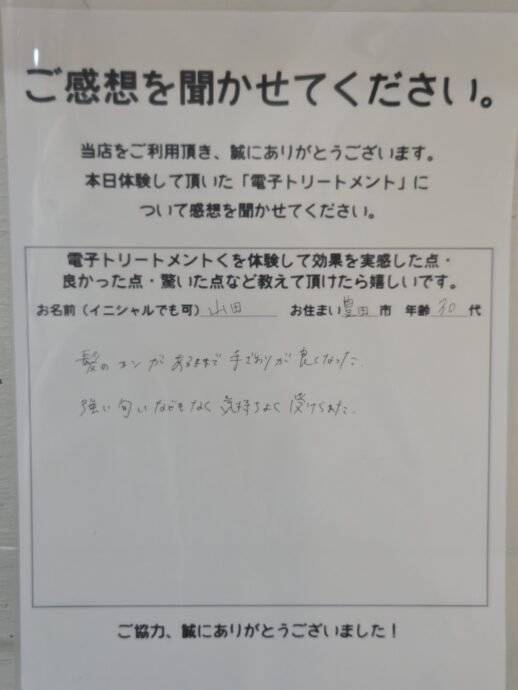 ご感想を聞かせてください。
当店をご利用頂き、誠にありがとうございます。
本日体験して頂いた「電子トリートメント」に
ついて感想を聞かせてください。
電子トリートメントくを体験して効果を実感した点・
良かった点・驚いた点など教えて頂けたら嬉しいです。
お名前（イニシャルでも可） 山田 お住まい 豊田 市 年齢 30 代
髪の コシ が あるままで 手ざわりが 良くなった.
強い 匂い などもなく 気持ちよく 受けられた.
ご協力、誠にありがとうございました！